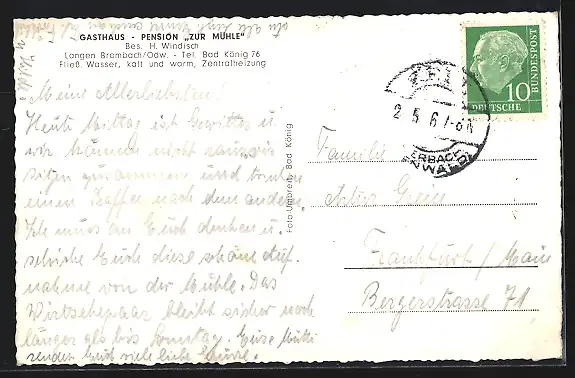 GASTHAUS - PENSION „ZUR MÜHLE"
Bes. H. Windisch
Langen Brombach/Odw. - Tel. Bad König 76
Fließ. Wasser, kalt und warm, Zentralheizung
Meine Allerliebsten!
Heute Mittag ist Gewitter u.
wir können nicht raus, wir
sitzen zusammen und trinken
einen Kaffee nach dem andern.
Ich muss an Euch denken u.
schicke Euch diese schöne Auf-
nahme von der Mühle. Das
Wirtsehepaar bleibt sicher noch
länger als bis Sonntag. Eure Mutti
sendet Euch viele liebe Grüsse.
Foto-Umbreit, Bad König
Familie
Artur
Frankfurt / Main
Bergerstrasse 71
ZELL
ERBACH
ODENWALD
10
DEUTSCHE
BUNDESPOST